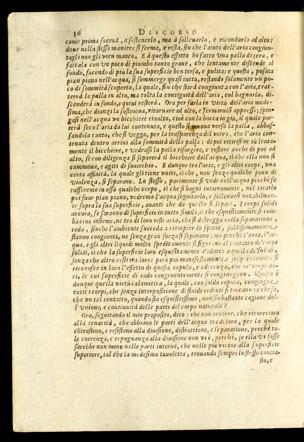 36 DISCORSO
come prima faceva, a sostenerlo, ma a sollevarlo, e ricondurlo ad alto;
dove nella stessa maniera si ferma, e resta, sin che l'aiuto dell'aria congiun-
tagli non gli vien manco. E a questo effetto hò fatto una palla di cera, e
fattala con un poco di piombo tanto grave, che lentamente discende al
fondo, facendo di più la sua superficie ben tersa, e pulita; e questa, posata
pian piano nell'acqua, si sommerge quasi tutta, restando solamente un po-
co di sommità scoperta, la quale, sin che starà congiunta con l'aria, trat-
terrà la palla in alto, ma tolta la contiguità dell'aria, col bagnarla, di-
scenderà in fondo, e quivi resterà. Ora per farla in virtù dell'aria mede-
sima, che dianzi la sosteneva, ritornare ad alto, e fermarvisi appresso; spin-
gasi nell'acqua un bicchiere rivolto, cioè con la bocca in giù, il quale por-
terà seco l'aria da lui contenuta, e questo si muova verso la palla, abbas-
sandolo tanto, che si vegga, per la trasparenza del vetro, che l'aria con-
tenuta dentro arrivi alla sommità della palla: di poi ritirisi in sù lenta-
mente il bicchiere, e vedrassi la palla risorgere, e restare anche di poi ad
alto, se con diligenza si separerà il bicchiere dall'acqua, sì che ella non si
commuova, e agiti di soverchio. È dunque tra l'aria, e gli altri corpi, una
certa affinità, la quale gli tiene uniti, sì che, non senza qualche poco di
violenza, si separano. Lo stesso, parimente si vede nell'acqua perchè se
tufferemo in essa qualche corpo, sì che si bagni interamente, nel tirarlo
poi fuor pian piano, vedremo l'acqua seguirlo, e sollevarsi notabilmen-
te sopra la sua superficie, avanti che da quello si separi. I corpi solidi
ancora, se saranno di superficie in tutto simili, sì che esquisitamente si com-
bacino insieme, nè tra di loro resti aria, che si distragga nella separazione, e
ceda, sinchè l'ambiente succeda a riempier lo spazio, saldissimamente
stanno congiunti, nè senza gran forza si separano: ma perchè l'aria, l'ac-
qua, e gli altri liquidi molto speditamente si figurano al contatto de' corpi
solidi, sì che la superficie loro esquisitamente s'adatta a quella de' solidi,
senza che altro resti tra loro; però più manifestamente, e frequentemente si
riconosce in loro l'effetto di questa copula, e aderenza, che ne' corpi du-
ri, le cui superficie di rado congruentemente si congiungono. Questa è
dunque quella virtù calamitica, la quale, con salda copula, congiugne
tutti i corpi, che senza interposizione di fluidi cedenti si toccano: e chi sa,
che un tal contatto, quando sia esquisitissimo, non sia bastante cagione del-
l'unione, e continuità delle parti del corpo naturale?
Ora, seguitando il mio proposito, dico: che non occorre, che ricorriamo
alla tenacità, che abbiano le parti dell'acqua tra di loro, per la quale
contrastino, e resistano alla divisione, distrazione, e separazione, perchè ta-
le coerenza, e repugnanza alla divisione non vi è, perchè, se ella vi fosse
sarebbe non meno nelle parti interne, che nelle più vicine alla superficie
superiore, tal che la medesima tavoletta, trovando sempre lo stesso contra-
sto, e